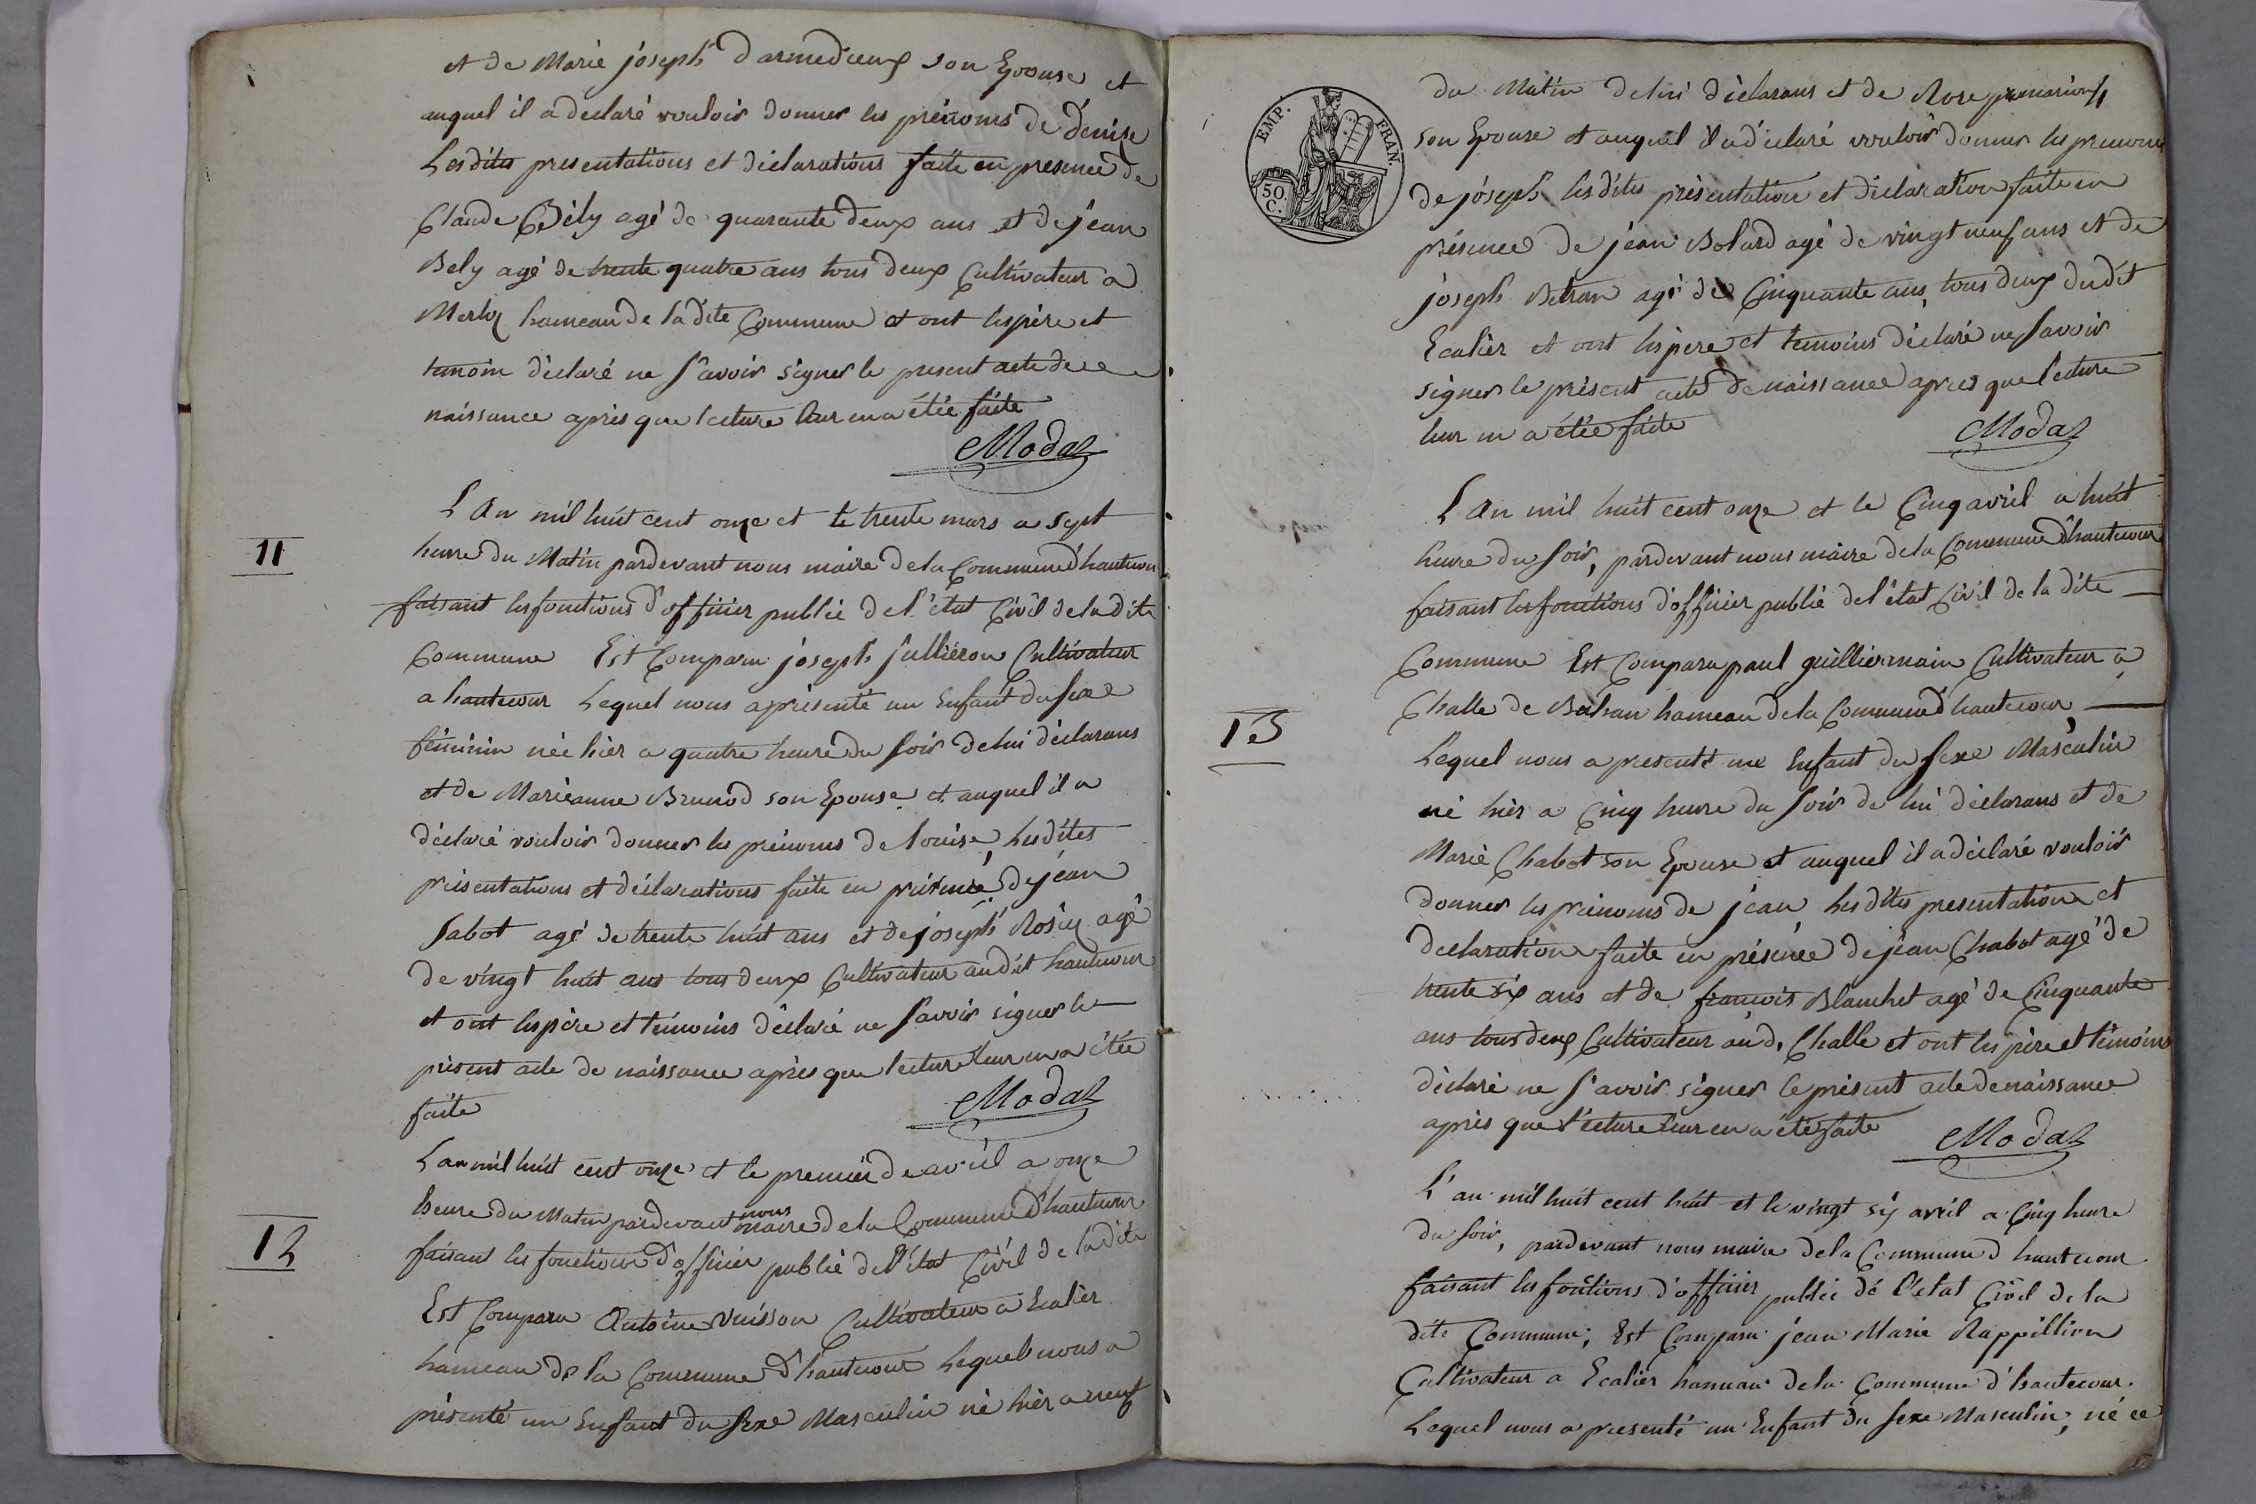 et de Marie joseph Darmedieux son Epouse et
auquel il a declaré vouloir donner les prénoms de denise
Lesdites presentations et déclarations faite en presence de
Claude Bély agé de quarante deux ans et de jean
Bely agé de trente quatre ans tous deux Cultivateur a
hameau de la dite Commune et ont les père et
temoin déclaré ne sçavoir signer le present acte de
naissance après que lecture leur en a étée faite
Modaz
11
L'An mil huit cent onze et le trente mars a sept
heure du Matin pardevant nous maire de la Commune d'hautecour
faisant les fonctions d'officier public de l'état Civil de la dite
Commune Est Comparu joseph Jullieron Cultivateur
a hautecour Lequel nous a présenté un Enfant du sexe
féminin née hier a quatre heure du soir de lui déclarans
et de Marieanne Brunod son Epouse et auquel il a
déclaré vouloir donner les prénoms de Louise, Lesdites
présentations et déclarations faite en présence de jean
Sabot agé de trente huit ans et de joseph Rosier agé
de vingt huit ans tous deux Cultivateur audit hautecour
et ont les père et témoins déclaré ne sçavoir signer le
présent acte de naissance après que lecture leur en a étée
faite
Modaz
12
L'an mil huit cent onze et le premier de avril a onze
heure du Matin pardevant nous maire de la Commune d'hautecour
faisant les fonctions d'officier public de l'état Civil de la dite
Est Comparu Antoine Vuisson Cultivateur a Ecalier
hameau de la Commune d'hautecour Lequel nous a
présenté un Enfant du sexe Masculin né hier a neuf
EMP. FRAN.
50 C.
du Matin de lui déclarans et de Rose
son Epouse et auquel il a déclaré vouloir donner les prenoms
de joseph les dites présentation et déclaration faite en
présence de jean Bolard agé de vingt neuf ans et de
joseph Betran agé de Cinquante ans, tous deux dudit
Ecalier et ont les pere et temoins déclaré ne sçavoir
signer le présent acte de naissance apres que lecture
leur en a étée faite
Modaz
13
L'An mil huit cent onze et le Cinq avril a huit
heure du soir, pardevant nous maire de la Commune d'hautecour
faisant les fonctions d'officier public de l'état Civil de la dite
Commune Est Comparu paul guilliermain Cultivateur a
Challe de Bohan hameau de la Commune d'hautecour,
Lequel nous a presenté un Enfant du sexe Masculin
né hier a Cinq heure du soir de lui déclarans et de
Marie Chabot son Epouse et auquel il a déclaré vouloir
donner les prénoms de jean Lesdites presentation et
declaration faite en présence de jean Chabot agé de
trente six ans et de françois Blanchet agé de Cinquante
ans tous deux Cultivateur aud. Challe et ont les père et témoins
déclaré ne sçavoir signer le présent acte de naissance
après que lecture leur en a étée faite
Modaz
L'an mil huit cent huit et le vingt six avril a Cinq heure
du soir, pardevant nous maire de la Commune d'hautecour
faisant les fonctions d'officier public de l'etat Civil de la
dite Commune, Est Comparu jean Marie Rappillion
Cultivateur a Ecalier hameau de la Commune d'hautecour.
Lequel nous a presenté un Enfant du sexe Masculin, né ce